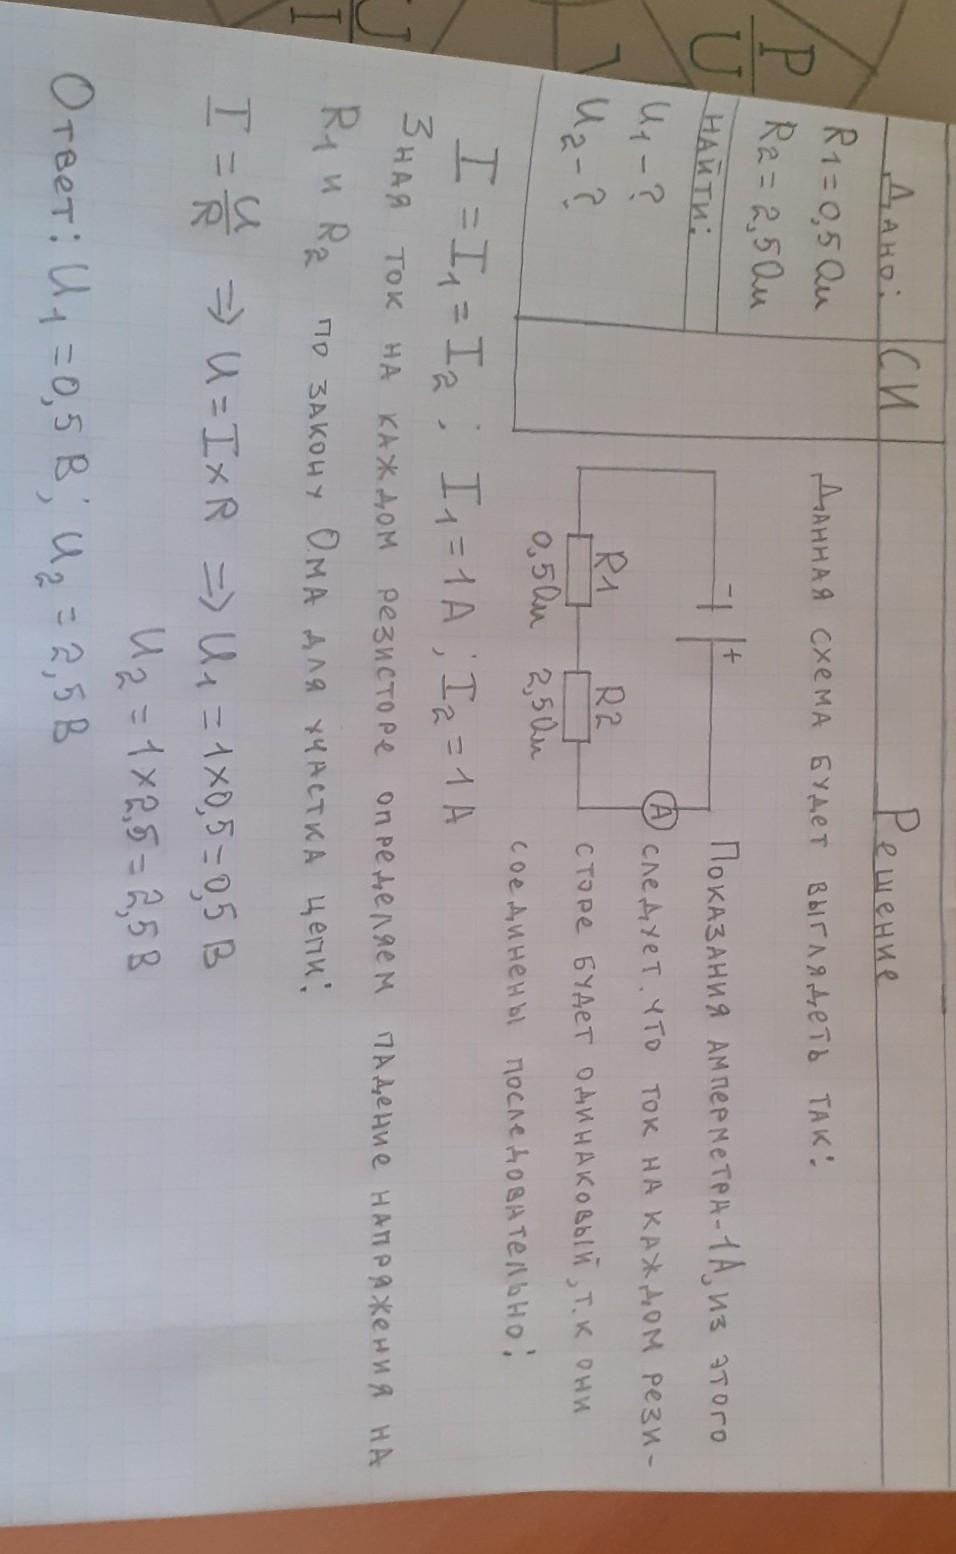 P
U
U
I
Дано:
СИ
Решение
R1=0,5Ом
R2=2,5Ом
НАЙТИ:
U1-?
U2-?
Данная схема будет выглядеть так:
- +
R1
0,5Ом
R2
2,5Ом
A
Показания амперметра-1А, из этого
следует. что ток на каждом рези-
сторе будет одинаковый, т.к они
соединены последовательно:
I=I1=I2; I1=1A; I2=1A
Зная ток на каждом резисторе определяем падение напряжения на
R1 и R2 по закону Ома для участка цепи:
I=U/R ⇒ U=I×R ⇒ U1=1×0,5=0,5В
U2=1×2,5=2,5В
Ответ: U1=0,5В; U2=2,5В